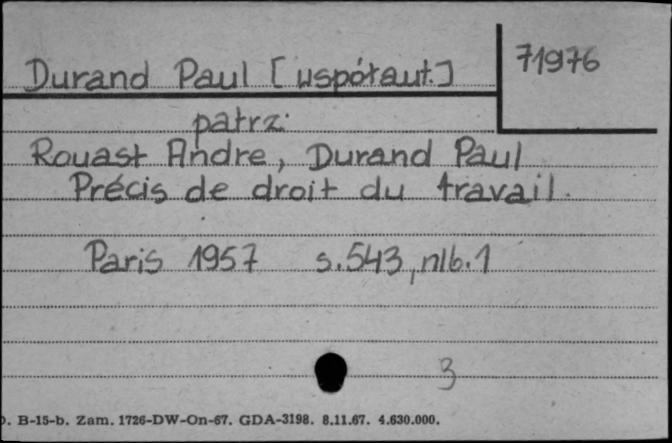 Durand Paul [współaut.]
71976
patrz:
Rouast Andre, Durand Paul
Précis de droit du travail.
Paris 1957 s. 543, nlb. 1
3
B-15-b. Zam. 1726-DW-On-67. GDA-3198. 8.11.67. 4.630.000.